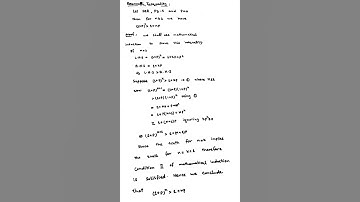 Bernoulli Inequality:
Let PER, P>-1 and P≠0
then for n≥2 we have
(1+P)ⁿ > 1+nP
Proof: we shall use mathematical
induction to prove this inequality
If n=2
L.H.S = (1+P)² = 1+2P+P²
R.H.S = 1+2P
⇒ L.H.S > R.H.S
Suppose (1+P)ᵏ > 1+kP → ① where k≥2
now (1+P)ᵏ⁺¹ = (1+P)(1+P)ᵏ
> (1+P)(1+kP) using ①
= 1+(k+1)P+kP²
≥ 1+(k+1)P ignoring kP²≥0
⇒ (1+P)ᵏ⁺¹ > 1+(k+1)P
Since the truth for n=k implies
the truth for n=k+1 therefore
condition II of mathematical induction
is satisfied. Hence we conclude
that (1+P)ⁿ > 1+nP